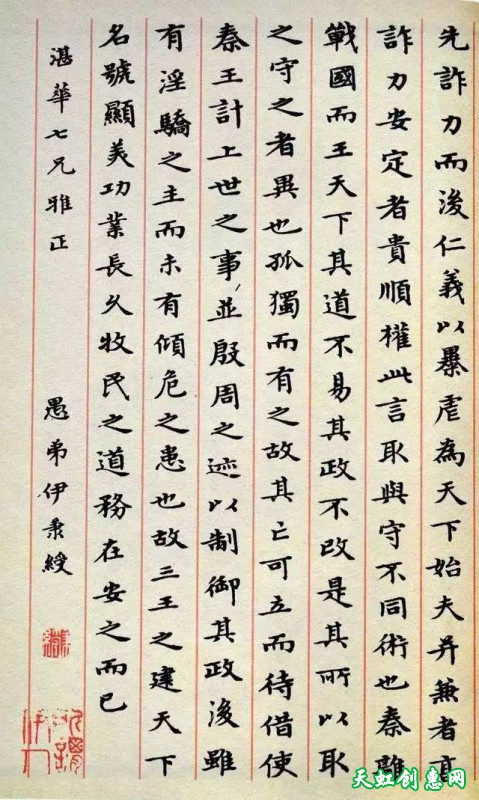 先詐力而後仁義以暴虐為天下始夫并兼者高
詐力安定者貴順權此言取與守不同術也秦離
戰國而王天下其道不易其政不改是其所以取
之守之者異也孤獨而有之故其亡可立而待借使
秦王計上世之事並殷周之迹以制御其政後雖
有淫驕之主而未有傾危之患也故三王之建天下
名號顯美功業長久牧民之道務在安之而已
湛華七兄雅正
愚弟伊秉綬
天虹创惠网